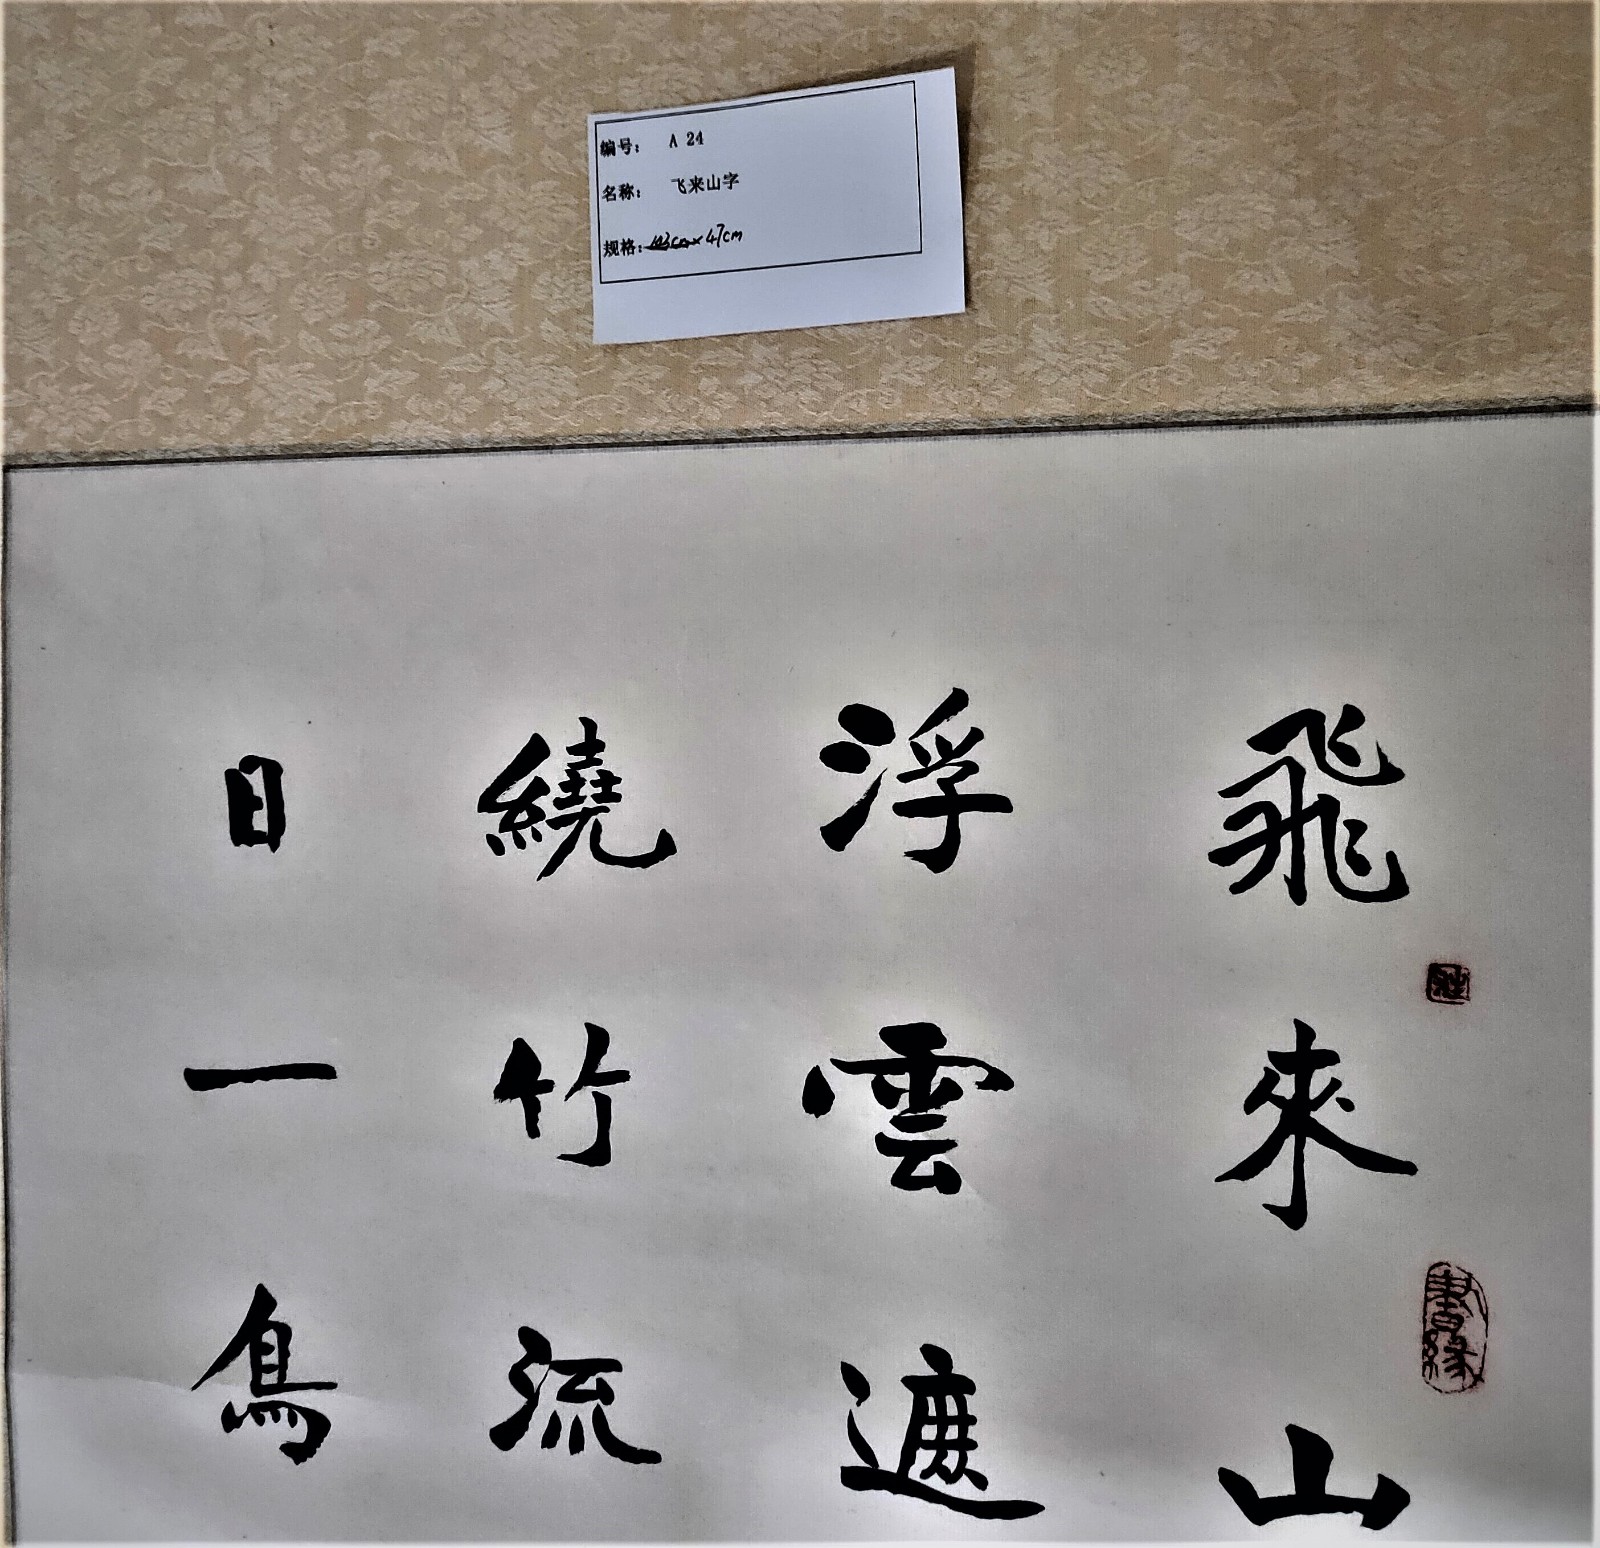 编号： A 24
名称： 飞来山字
规格： × 47cm
飛來山
浮雲遮
繞竹流
日一鳥
書緣